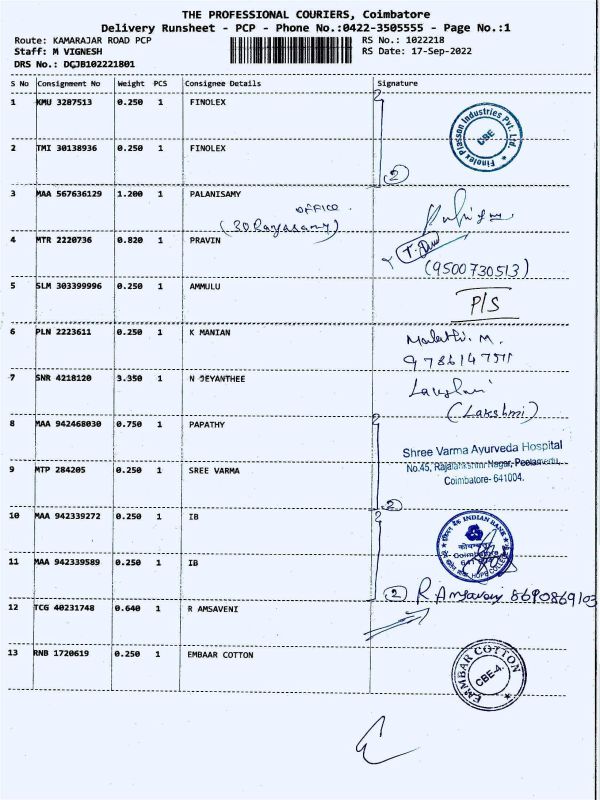 THE PROFESSIONAL COURIERS, Coimbatore
Delivery Runsheet - PCP - Phone No.:0422-3505555 - Page No.:1
Route: KAMARAJAR ROAD PCP RS No.: 1022218
Staff: M VIGNESH RS Date: 17-Sep-2022
DRS No.: DCJB102221801
S No Consignment No Weight PCS Consignee Details Signature
1 KMU 3287513 0.250 1 FINOLEX
Finolex Plasson Industries Pvt. Ltd.
CBE
2 TMI 30138936 0.250 1 FINOLEX
2
3 MAA 567636129 1.200 1 PALANISAMY
OFFICE
4 MTR 2220736 0.820 1 PRAVIN
(9500730513)
5 SLM 303399996 0.250 1 AMMULU
P/S
6 PLN 2223611 0.250 1 K MANIAN
Malathi. M.
7 SNR 4218120 3.350 1 N JEYANTHEE
Lakshmi
(Lakshmi)
8 MAA 942468030 0.750 1 PAPATHY
Shree Varma Ayurveda Hospital
No.45, Rajalakshmi Nagar, Peelamedu,
Coimbatore- 641004.
9 MTP 284205 0.250 1 SREE VARMA
2
10 MAA 942339272 0.250 1 IB
INDIAN BANK
इंडियन बैंक
कोयम्बतूर
Coimbatore
HOPE COLLEGE
11 MAA 942339589 0.250 1 IB
2 R Amsaveni 8690869103
12 TCG 40231748 0.640 1 R AMSAVENI
13 RNB 1720619 0.250 1 EMBAAR COTTON
EMMBAR COTTON
CBE-4.